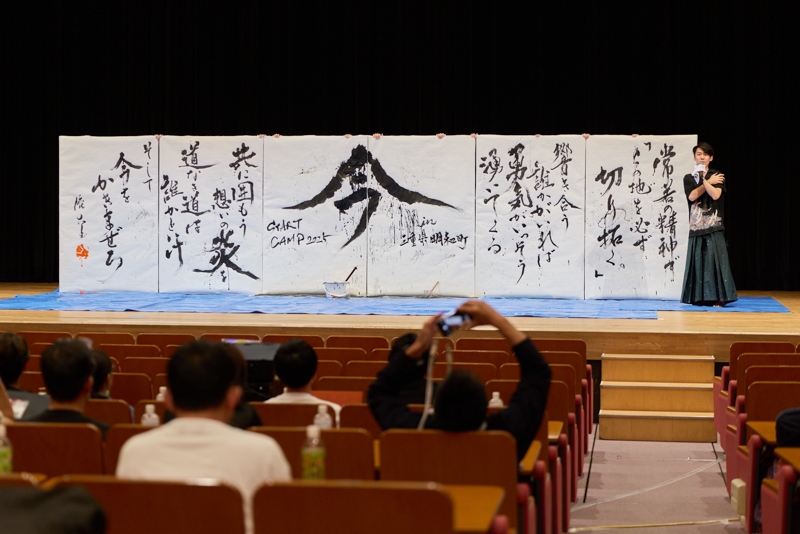 常若の精神で
「この地を必ず
切り拓く。」
響き合う
誰かがいれば
勇気がいっそう
湧いてくる
今
in
三重県明和町
START
CAMP 2025
共に囲もう
想いの炎を
道なき道は
誰かと汗
そして
今を
かきまぜろ